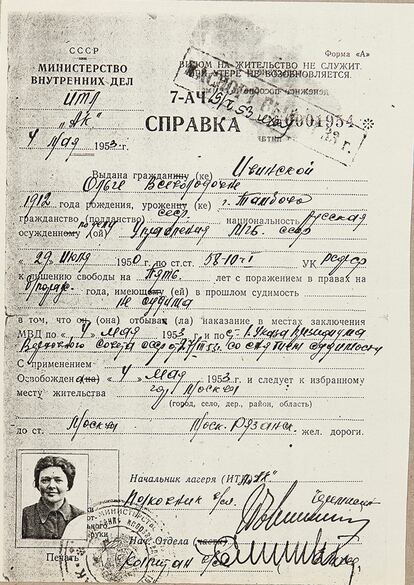 СССР
МИНИСТЕРСТВО
ВНУТРЕННИХ ДЕЛ
ИТЛ
„ЛК"
4 мая 1953 г.
Форма «А»
ВИДОМ НА ЖИТЕЛЬСТВО НЕ СЛУЖИТ.
ПРИ УТЕРЕ НЕ ВОЗОБНОВЛЯЕТСЯ.
7-АЧ
0001954 *
СПРАВКА
Выдана гражданину (ке) Ивинской
Ольге Всеволодовне
1912 года рождения, уроженцу (ке) г. Тамбова
гражданство (подданство) СССР национальность Русская
осужденному (ой) по делу Управления МГБ СССР
„29" июля 1950 г. по ст. 58-10-1 УК РСФСР
к лишению свободы на Пять лет с поражением в правах на
года, имеющ (ей) в прошлом судимость
не судима
в том, что он (она) отбывал (ла) наказание в местах заключения
МВД по „4" мая 1953 г. и по Указа Президиума
Верховного Совета СССР со снятием судимости
С применением
Освобожден(а) „4" мая 1953 г. и следует к избранному
месту жительства гор. Москва
(город, село, дер., район, область)
до ст. Москва Моск. Рязанск. жел. дороги.
Начальник лагеря (ИТЛ) „ЛК"
Нач. Отдела (части)
Капитан
Печать